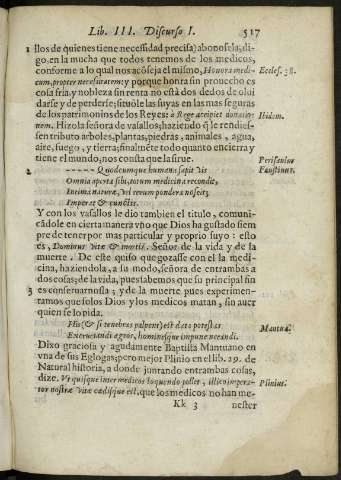 Lib. III. Discurso I. 517
1 llos de quienes tiene necessidad precisa) abonosela, di-
go, en la mucha que todos tenemos de los medicos,
conforme a lo qual nos acōseja el mismo, Honora medi- Eccles. 38.
cum, propter necessitatem: y porque honra sin prouecho es
cosa fria, y nobleza sin renta no està dos dedos de olui
darse y de perderse; situòle las suyas en las mas seguras
de los patrimonios de los Reyes: à Rege accipiet donatio- Ibidem.
nem. Hizola señora de vasallos; haziendo q̃ le rendies-
sen tributo arboles, plantas, piedras, animales, agua,
aire, fuego, y tierra; finalmēte todo quanto encierra y
tiene el mundo, nos consta que la sirue. Perisaulus
2 ----- Quodcumque humana sapit vis Faustinus.
Omnia aperta sibi, totum medicina recondit,
Intima naturæ, vel rerum pondera noscit;
Imperat & cunctis.
Y con los vasallos le dio tambien el titulo, comuni-
cãdole en cierta manera vno que Dios ha gustado siem
pre de tener por mas particular y proprio suyo: esto
es, Dominus vitæ & mortis. Señor de la vida y de la
muerte. De este quiso que gozasse con el la medi-
cina, haziendola, a su modo, señora de entrambas a
dos cosas; de la vida, pues sabemos que su principal fin
3 es conseruarnosla; y de la muerte pues experimen-
tamos que solos Dios y los medicos matan, sin auer
quien se lo pida.
His (& si tenebras palpent) est data potestas Mantua.
Excruciandi ægros, hominesque impune necandi.
Dixo graciosa y agudamente Baptista Mantuano en
vna de sus Eglogas; pero mejor Plinio en el lib. 29. de
Natural historia, a donde juntando entrambas cosas,
dize. Vt quisque inter medicos loquendo pollet, illico impera- Plinius.
tor nostræ vitæ cædisque est. que los medicos no han me-
Kk 3 nester